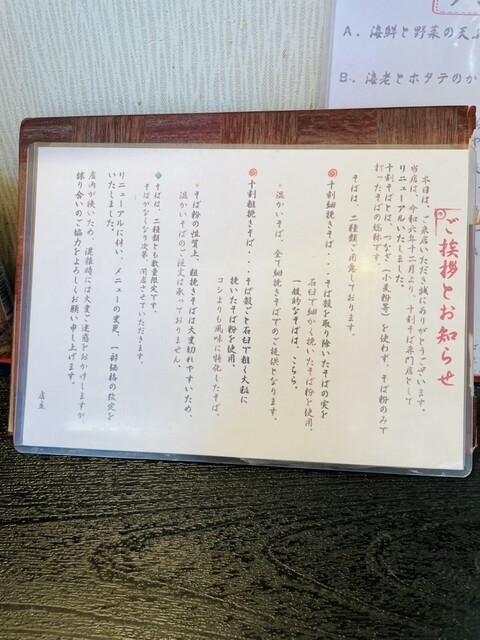 A. 海鮮と野菜の天ぷ
B. 海老とホタテのか
ご挨拶とお知らせ
本日は、ご来店いただき誠にありがとうございます。
当店は、令和六年十二月より、十割そば専門店として
リニューアルいたしました。
十割そばとは、つなぎ(小麦粉等)を使わず、そば粉のみで
打ったそばの総称です。
そばは、二種類ご用意しております。
十割細挽きそば・・・そば殻を取り除いたそばの実を
石臼で細かく挽いたそば粉を使用。
一般的なそばは、こちら。
・温かいそば、全て細挽きそばでのご提供となります。
十割粗挽きそば・・・そば殻ごと石臼で粗く大粒に
挽いたそば粉を使用。
コシよりも風味に特化したそば。
・そば粉の性質上、粗挽きそばは大変切れやすいため、
温かいそばのご注文は承っておりません。
そばは、二種類とも数量限定です。
そばがなくなり次第、閉店させていただきます。
リニューアルに伴い、メニューの変更、一部価格の改定を
いたしました。
店内が狭いため、混雑時には大変ご迷惑をおかけしますが、
譲り合いのご協力をよろしくお願い申し上げます。
店主